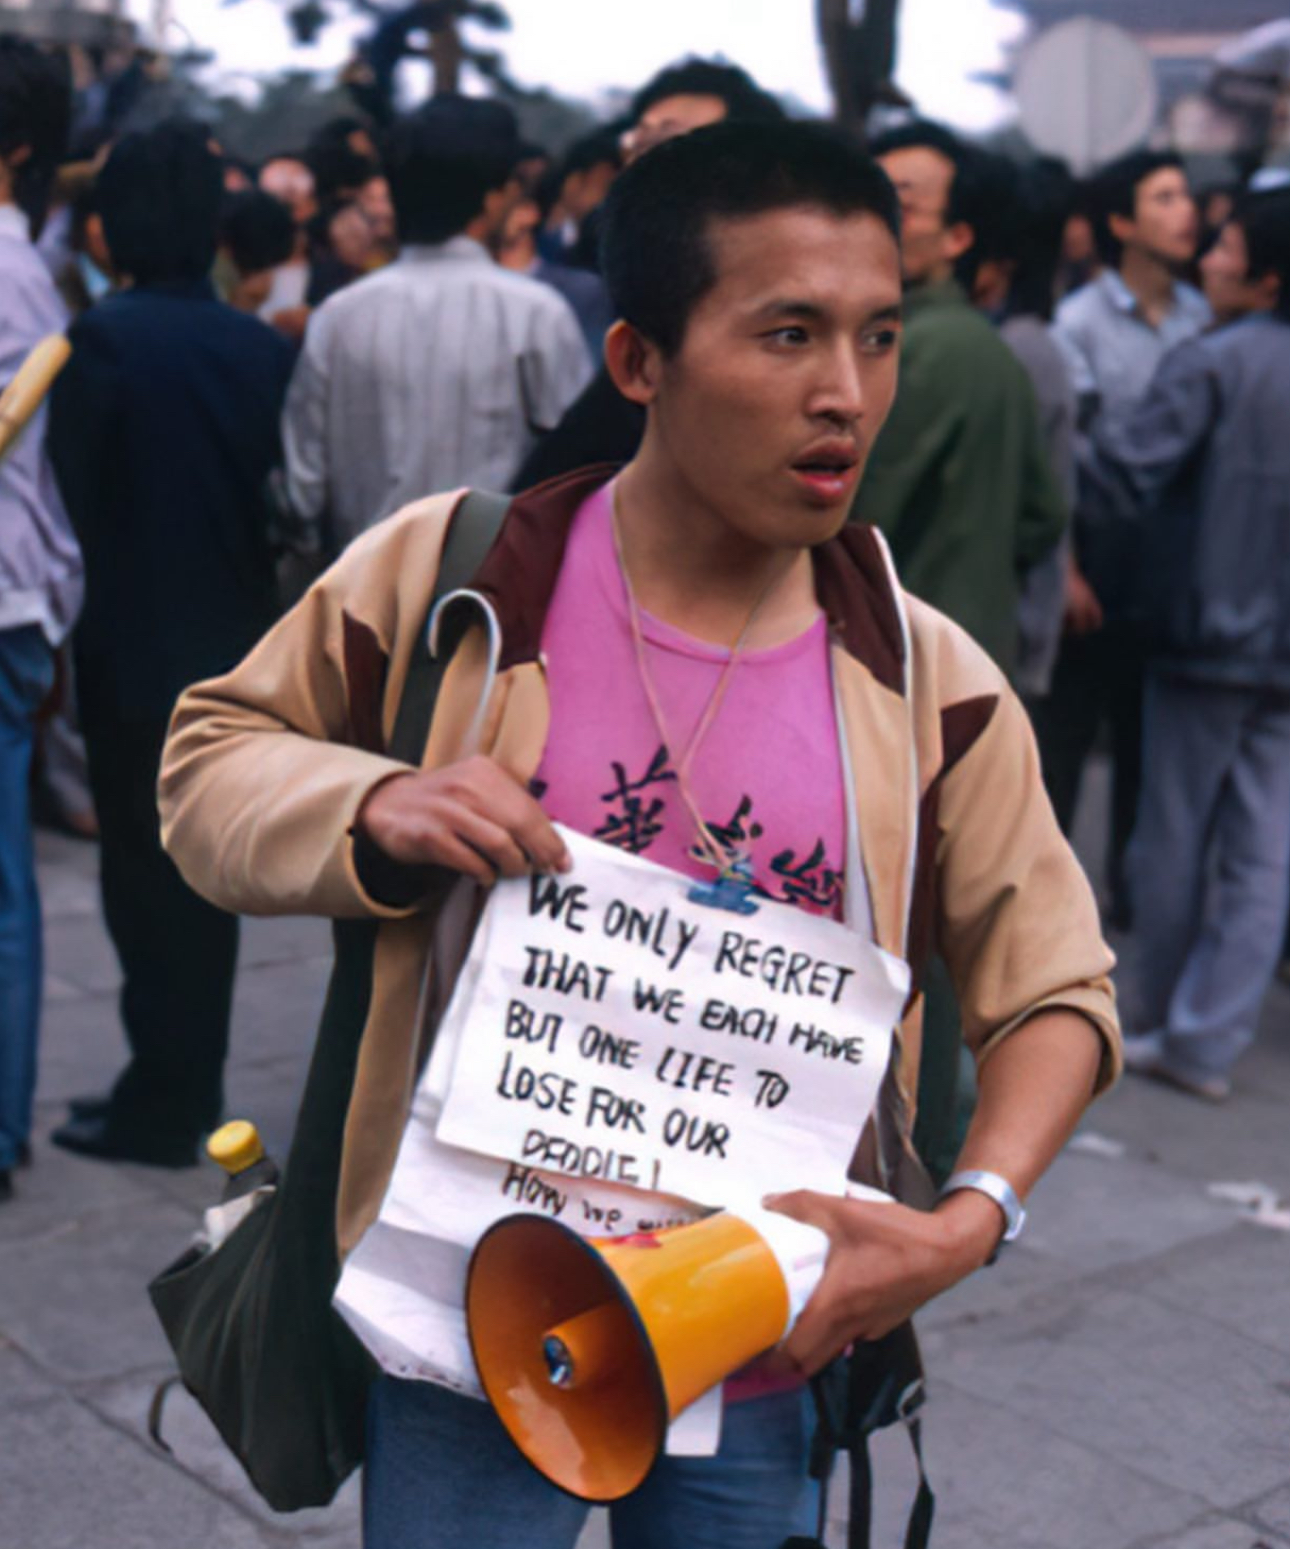 華
WE ONLY REGRET
THAT WE EACH HAVE
BUT ONE LIFE TO
LOSE FOR OUR
PEOPLE!
How we